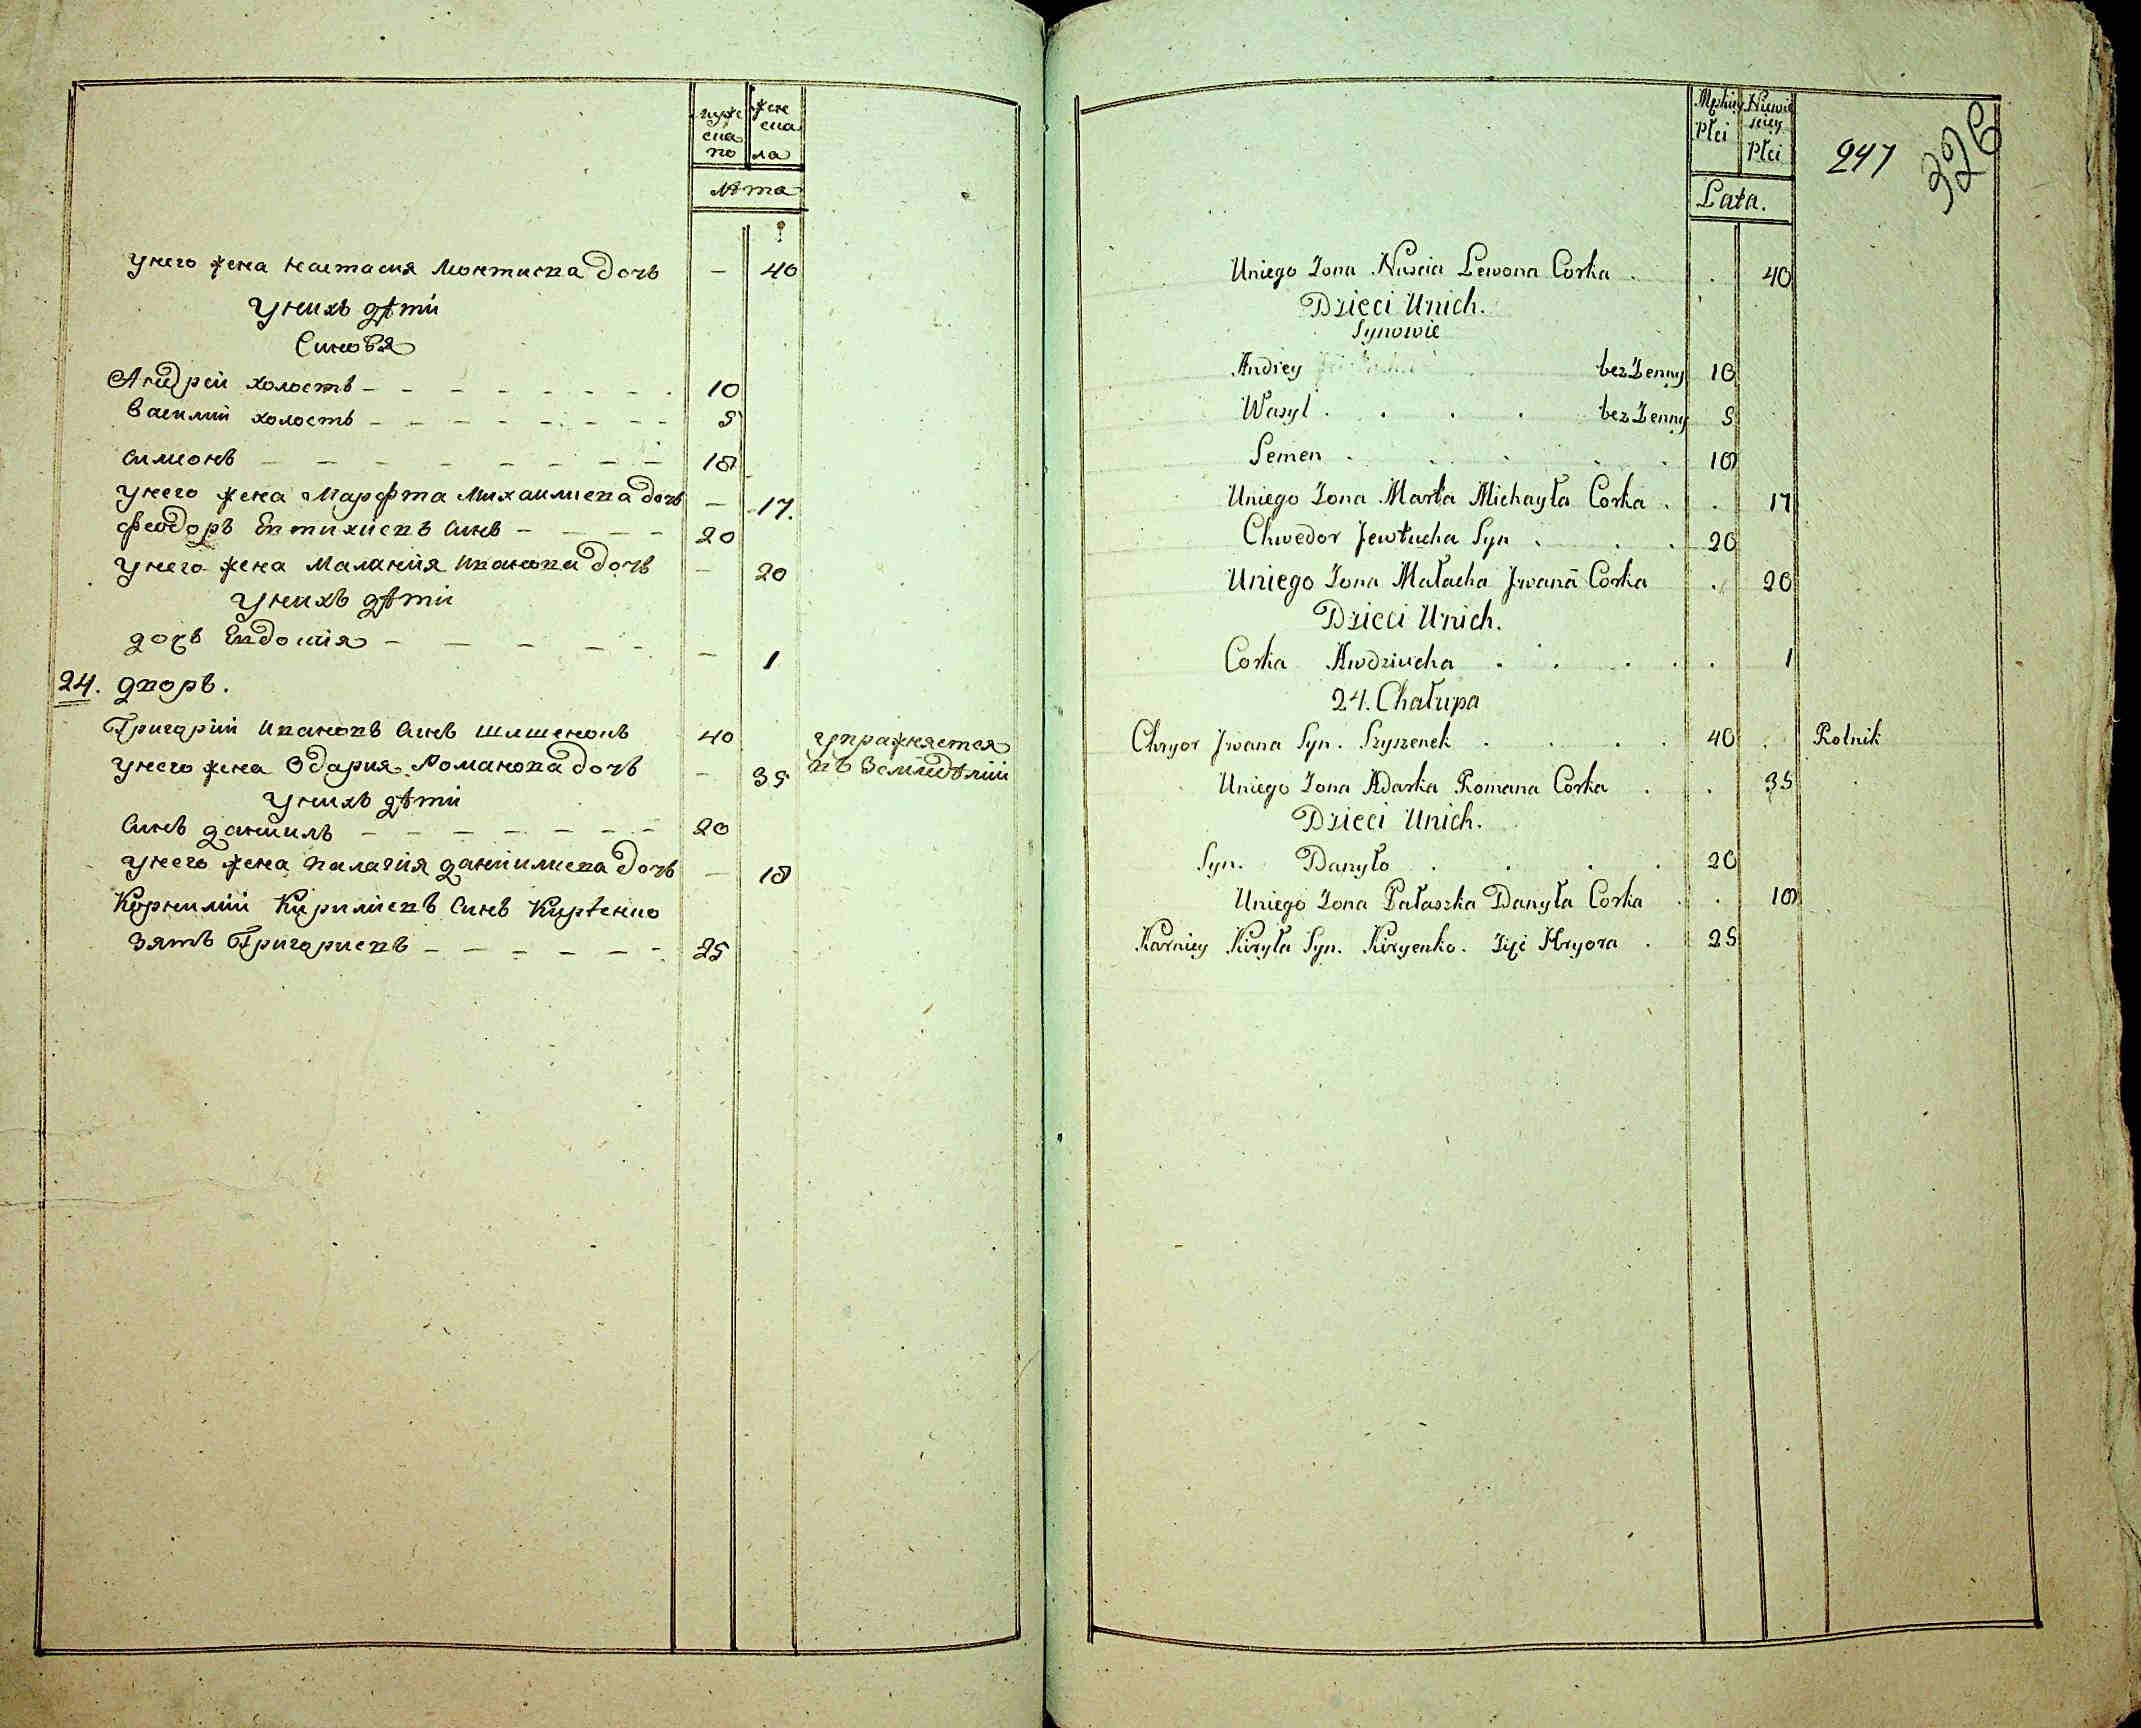 мужеска по
женска ла
лѣта
унего жена настасия Леонтиева дочь – 40
унихъ дѣти
Синовя
Андрей холостъ 10
василий холостъ 5
симионъ 18
унего жена Марфта Михаилиева дочь – 17.
феодоръ Евтихиевъ Синъ 20
унего жена Малания иванова дочь – 20
унихъ дѣти
дочь Евдокия – 1
24. дворъ.
Григорий ивановъ Синъ шишенокъ 40 упражняется
въ Земледѣлии
унего жена Одария Романова дочь – 35
унихъ дѣти
Синъ даниилъ 20
унего жена палагия даниилиева дочь – 18
Корнилий Кирилиевъ Синъ Кириенко
зять Григориевъ 25
Męskiey Płci
Niewieściey Płci
247
326
Lata.
Uniego Zona Nascia Lewona Corka 40
Dzieci Unich.
Synowie
Andrey bez Zenny 10
Wasyl bez Zenny 5
Semen 18
Uniego Zona Marta Michayła Corka 17
Chwedor Jewtucha Syn 20
Uniego Zona Małacha Jwana Corka 20
Dzieci Unich.
Corka Awdziucha 1
24. Chałupa
Chryor Jwana Syn. Szyszenek 40 Rolnik
Uniego Zona Adarka Romana Corka 35
Dzieci Unich.
Syn. Danyło 20
Uniego Zona Pałaszka Danyła Corka 18
Karniey Kiryła Syn. Kiryenko. Zięć Hryora 25